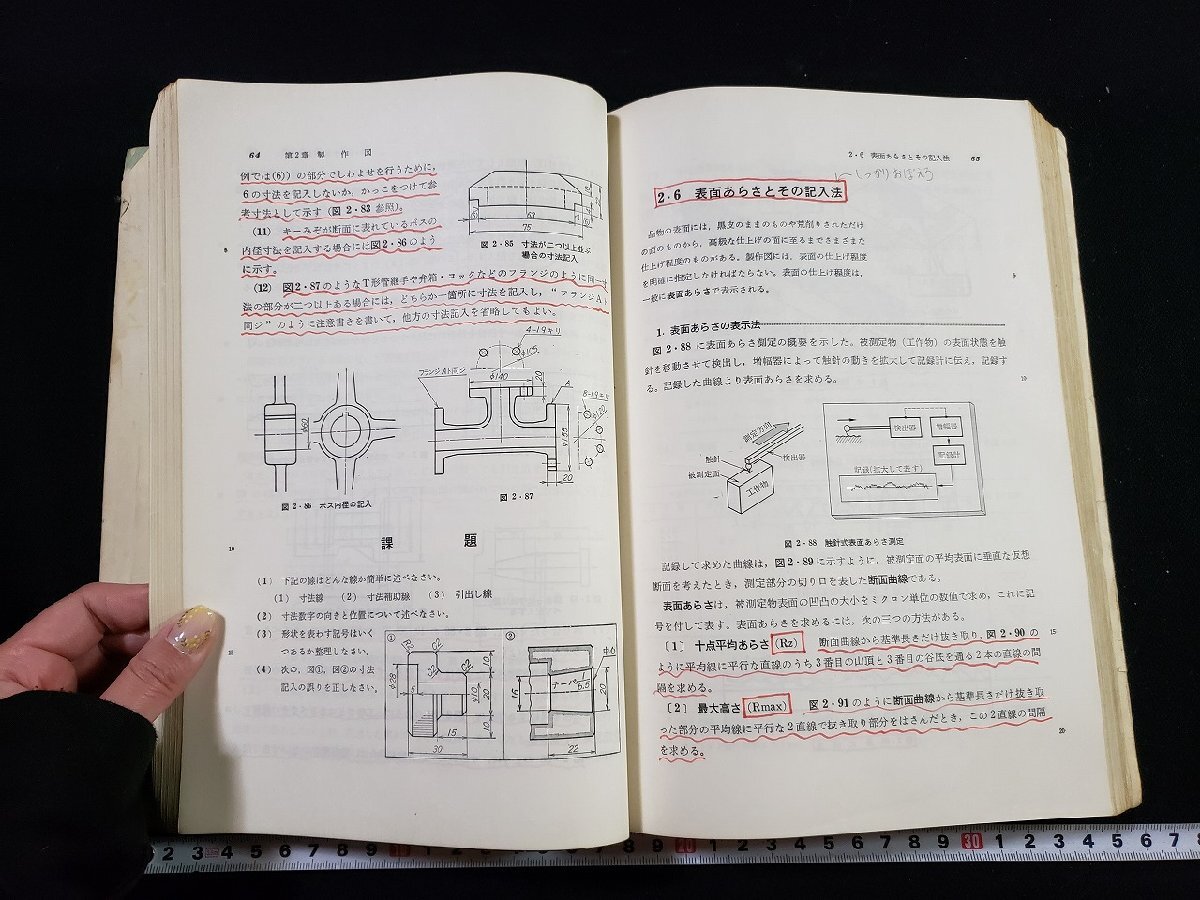 64 第2章 製作図
例では(6)) の部分でしわよせを行うために,
6の寸法を記入しないか, かっこをつけて参
考寸法として示す (図2・83参照)。
(11) キーみぞが断面に表れているボスの
内径寸法を記入する場合には図2・86のよう
に示す。
63
75
図2・85 寸法が二つ以上並ぶ
場合の寸法記入
(12) 図2・87のようなT形管継手や弁箱・コックなどのフランジのように同一寸
法の部分が二つ以上ある場合には, どちらか一箇所に寸法を記入し, “フランジAト
同ジ”のように注意書きを書いて, 他方の寸法記入を省略してもよい。
4-19キリ
φ105
φ140
20
フランジAト同ジ
A
8-19キリ
φ60
φ155
φ120
20
図2・86 ボス内径の記入
図2・87
課題
(1) 下記の線はどんな線か簡単に述べなさい。
(1) 寸法線 (2) 寸法補助線 (3) 引出し線
(2) 寸法数字の向きと位置について述べなさい。
(3) 形状を表わす記号はいく
つあるか整理しなさい。
(4) 次の, 図①, 図②の寸法
記入の誤りを正しなさい。
①
R2
C2
C2
φ28
5
φ10
10
20
10
15
30
②
φ6
16
20
22
2・6 表面あらさとその記入法 65
しっかりおぼえろ
2・6 表面あらさとその記入法
品物の表面には, 黒皮のままのものや荒削りされただけ
の面のものから, 高級な仕上げの面に至るまでさまざまな
仕上げ程度のものがある。製作図には, 表面の仕上げ程度
を明確に指定しなければならない。表面の仕上げ程度は,
一般に表面あらさで表示される。
5
1. 表面あらさの表示法
図2・88に表面あらさ測定の概要を示した。被測定物 (工作物) の表面状態を触
針を移動させて検出し, 増幅器によって触針の動きを拡大して記録計に伝え, 記録す
る。記録した曲線より表面あらさを求める。
10
測定方向
触針
検出器
被測定面
工作物
検出器
増幅器
記録計
記録(拡大して表す)
図2・88 触針式表面あらさ測定
記録して求めた曲線は, 図2・89に示すように, 被測定面の平均表面に垂直な仮想
断面を考えたとき, 測定部分の切り口を表した断面曲線である。
表面あらさは, 被測定物表面の凹凸の大小をミクロン単位の数値で求め, これに記
号を付して表す。表面あらさを求めるには, 次の三つの方法がある。
15
〔1〕 十点平均あらさ (Rz) 断面曲線から基準長さだけ抜き取り, 図2・90の
ように平均線に平行な直線のうち3番目の山頂と3番目の谷底を通る2本の直線の間
隔を求める。
〔2〕 最大高さ (Rmax) 図2・91のように断面曲線から基準長さだけ抜き取
った部分の平均線に平行な2直線で抜き取り部分をはさんだとき, この2直線の間隔
を求める。
20